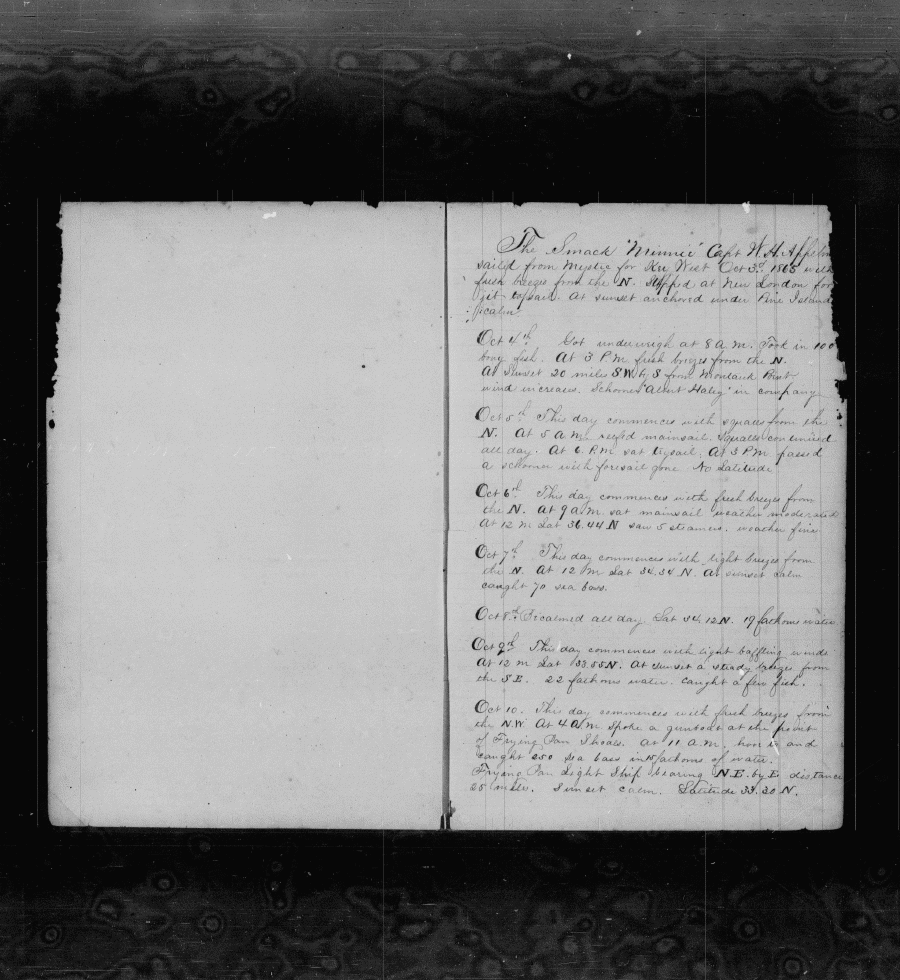 The Smack "Minnie" Capt W. H. Appelm
sailed from Mystic for Key West Oct 3d 1865 with
fresh breezes from the N. Stopped at New London for
jib topsail. At sunset anchored under Pine Island
calm
Oct 4th Got underweigh at 8 A.M. Took in 100
bony fish. At 3 P.M. fresh breezes from the N.
At Sunset 20 miles S.W. by S from Montauk Point
wind increases. Schooner "Albert Haley" in company
Oct 5th This day commences with squalls from the
N. At 5 A.M. reefed mainsail. Squalls continued
all day. At 6 P.M. sat trysail. At 3 P.M. passed
a schooner with foresail gone No Latitude
Oct 6th This day commences with fresh breezes from
the N. At 9 a.m. sat mainsail weather moderated
At 12 M Lat 36.44 N saw 5 steamers. weather fine
Oct 7th This day commences with light breezes from
the N. At 12 M Lat 34.34 N. At sunset calm
caught 70 sea bass.
Oct 8th Becalmed all day Lat 34.12 N. 19 fathoms water
Oct 9th This day commences with light baffling winds
At 12 M Lat 33.55 N. At sunset a steady breeze from
the S.E. 22 fathoms water. caught a few fish.
Oct 10. This day commences with fresh breezes from
the N.W. At 4 A.M Spoke a gunboat at the point
of Frying Pan Shoals. At 11 A.M. hove to and
caught 250 sea bass in 15 fathoms of water.
Frying Pan Light Ship bearing N.E. by E distance
25 miles. Sunset calm. Latitude 33.20 N.